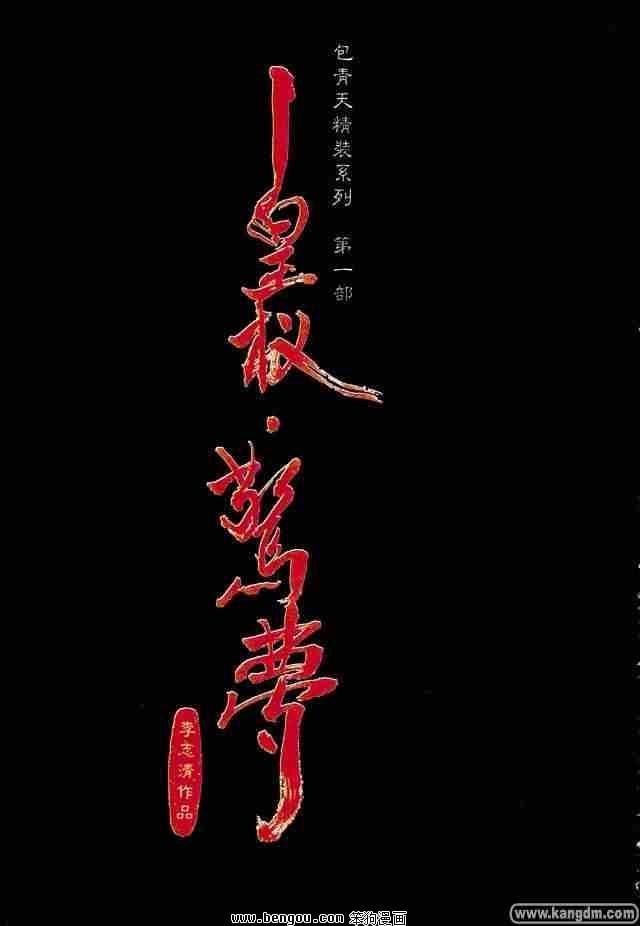 包青天精裝系列 第一部
皇权·驚夢
李志清作品
www.bengou.com 笨狗漫画
www.kangdm.com